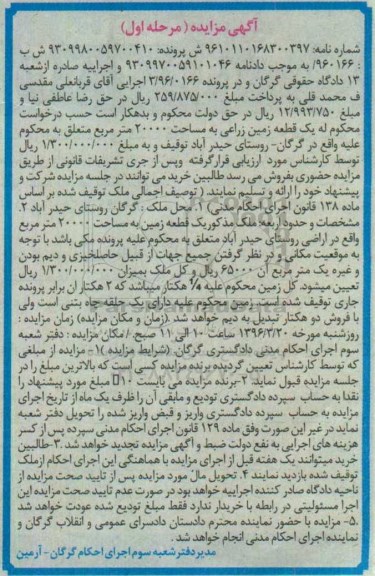 آگهی مزایده ( مرحله اول )
شماره نامه: ۹۶۱۰۱۱۰۱۶۸۳۰۰۳۹۷ ش پرونده: ۹۳۰۹۹۸۰۰۵۹۷۰۰۴۱۰ ش ب
: ۹۶۰۱۶۶/ به موجب دادنامه ۹۳۰۹۹۷۰۰۵۹۱۰۱۰۴۶ و اجراییه صادره ازشعبه
۱۳ دادگاه حقوقی گرگان و در پرونده ۳/۹۶/۰۱۶۶ اجرایی آقای قربانعلی مقدسی
ف محمد قلی به پرداخت مبلغ ۲۵۹/۸۷۵/۰۰۰ ریال در حق رضا عاطفی نیا و
مبلغ ۱۲/۹۹۳/۷۵۰ ریال در حق دولت محکوم و بدهکار است حسب درخواست
محکوم له یک قطعه زمین زراعی به مساحت ۲۰۰۰۰ متر مربع متعلق به محکوم
علیه واقع در گرگان- روستای حیدر آباد توقیف و به مبلغ ۱/۳۰۰/۰۰۰/۰۰۰ ریال
توسط کارشناس مورد ارزیابی قرارگرفته وپس از جری تشریفات قانونی از طریق
مزایده حضوری بفروش می رسد طالبین خرید می توانند در جلسه مزایده شرکت و
پیشنهاد خود را ارائه و تسلیم نمایند. ( توصیف اجمالی ملک توقیف شده بر اساس
ماده ۱۳۸ قانون اجرای احکام مدنی) ۱. محل ملک : گرگان روستای حیدر آباد ۲.
مشخصات و حدود اربعه ملک مذکور یک قطعه زمین به مساحت ۲۰۰۰۰ متر مربع
واقع در اراضی روستای حیدر آباد متعلق به محکوم علیه پرونده مکی باشد با توجه
به موقعیت مکانی و در نظر گرفتن جمیع جهات از قبیل حاصلخیزی و دیم بودن
و غیره یک متر مربع آن ۶۵۰۰۰ ریال و کل ملک بمیزان ۱/۳۰۰/۰۰۰/۰۰۰ ریال
تعیین میشود. کل زمین محکوم علیه هکتار میباشد که ۲ هکتار آن برابر پرونده
جاری توقیف شده است. زمین محکوم علیه دارای یک حلقه چاه بتنی است ولی
با فروش دو هکتار تبدیل به دیم خواهد شد. (زمان و مکان مزایده) زمان مزایده :
روزشنبه مورخه ۱۳۹۶/۳/۲۰ ساعت ۱۰ الی ۱۱ صبح . /مکان مزایده : دفتر شعبه
سوم اجرای احکام مدنی دادگستری گرگان (شرایط مزایده )۱- مزایده از مبلغی
که توسط کارشناس تعیین گردیده برنده مزایده کسی است که بالاترین مبلغ را در
جلسه مزایده قبول نماید. ۲-برنده مزایده می بایست ۱۰٪ مبلغ مورد پیشنهاد را
نقدا به حساب سپرده دادگستری تودیع و مابقی آن را ظرف یک ماه از تاریخ اجرای
مزایده به حساب سپرده دادگستری واریز و قبض واریز شده را تحویل دفتر شعبه
نماید در غیر این صورت وفق ماده ۱۲۹ قانون اجرای احکام مدنی سپرده پس از کسر
هزینه های اجرایی به نفع دولت ضبط و آگهی مزایده تجدید خواهد شد .۳-طالبین
خرید میتوانند یک هفته قبل از اجرای مزایده با هماهنگی این اجرای احکام ازملک
توقیف شده بازدید نمایند ۴. تحویل مال مورد مزایده پس از تایید صحت مزایده از
ناحیه دادگاه صادر کننده اجراییه خواهد بود در صورت عدم تایید صحت مزایده این
اجرا مسئولیتی در رابطه با خریدار ندارد فقط مبلغ تودیع شده عودت خواهد شد
.۵- مزایده با حضور نماینده محترم دادستان دادسرای عمومی و انقلاب گرگان و
نماینده اجرای احکام مدنی انجام خواهد شد .
مدیر دفتر شعبه سوم اجرای احکام گرگان - آرمین